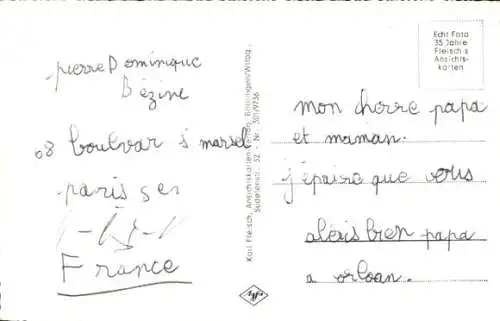 pierre Dominique
Bézine
08 boulvar s marsel
paris 5er
France
Karl Fleisch, Ansichtskarten-Verlag,
Sudetenstr. 52 - Nr. 301/9736
Echt Foto
35 Jahre
Fleisch's
Ansichts-
karten
mon cherre papa
et maman.
j'épaire que vous
aléis bien papa
a orloan.